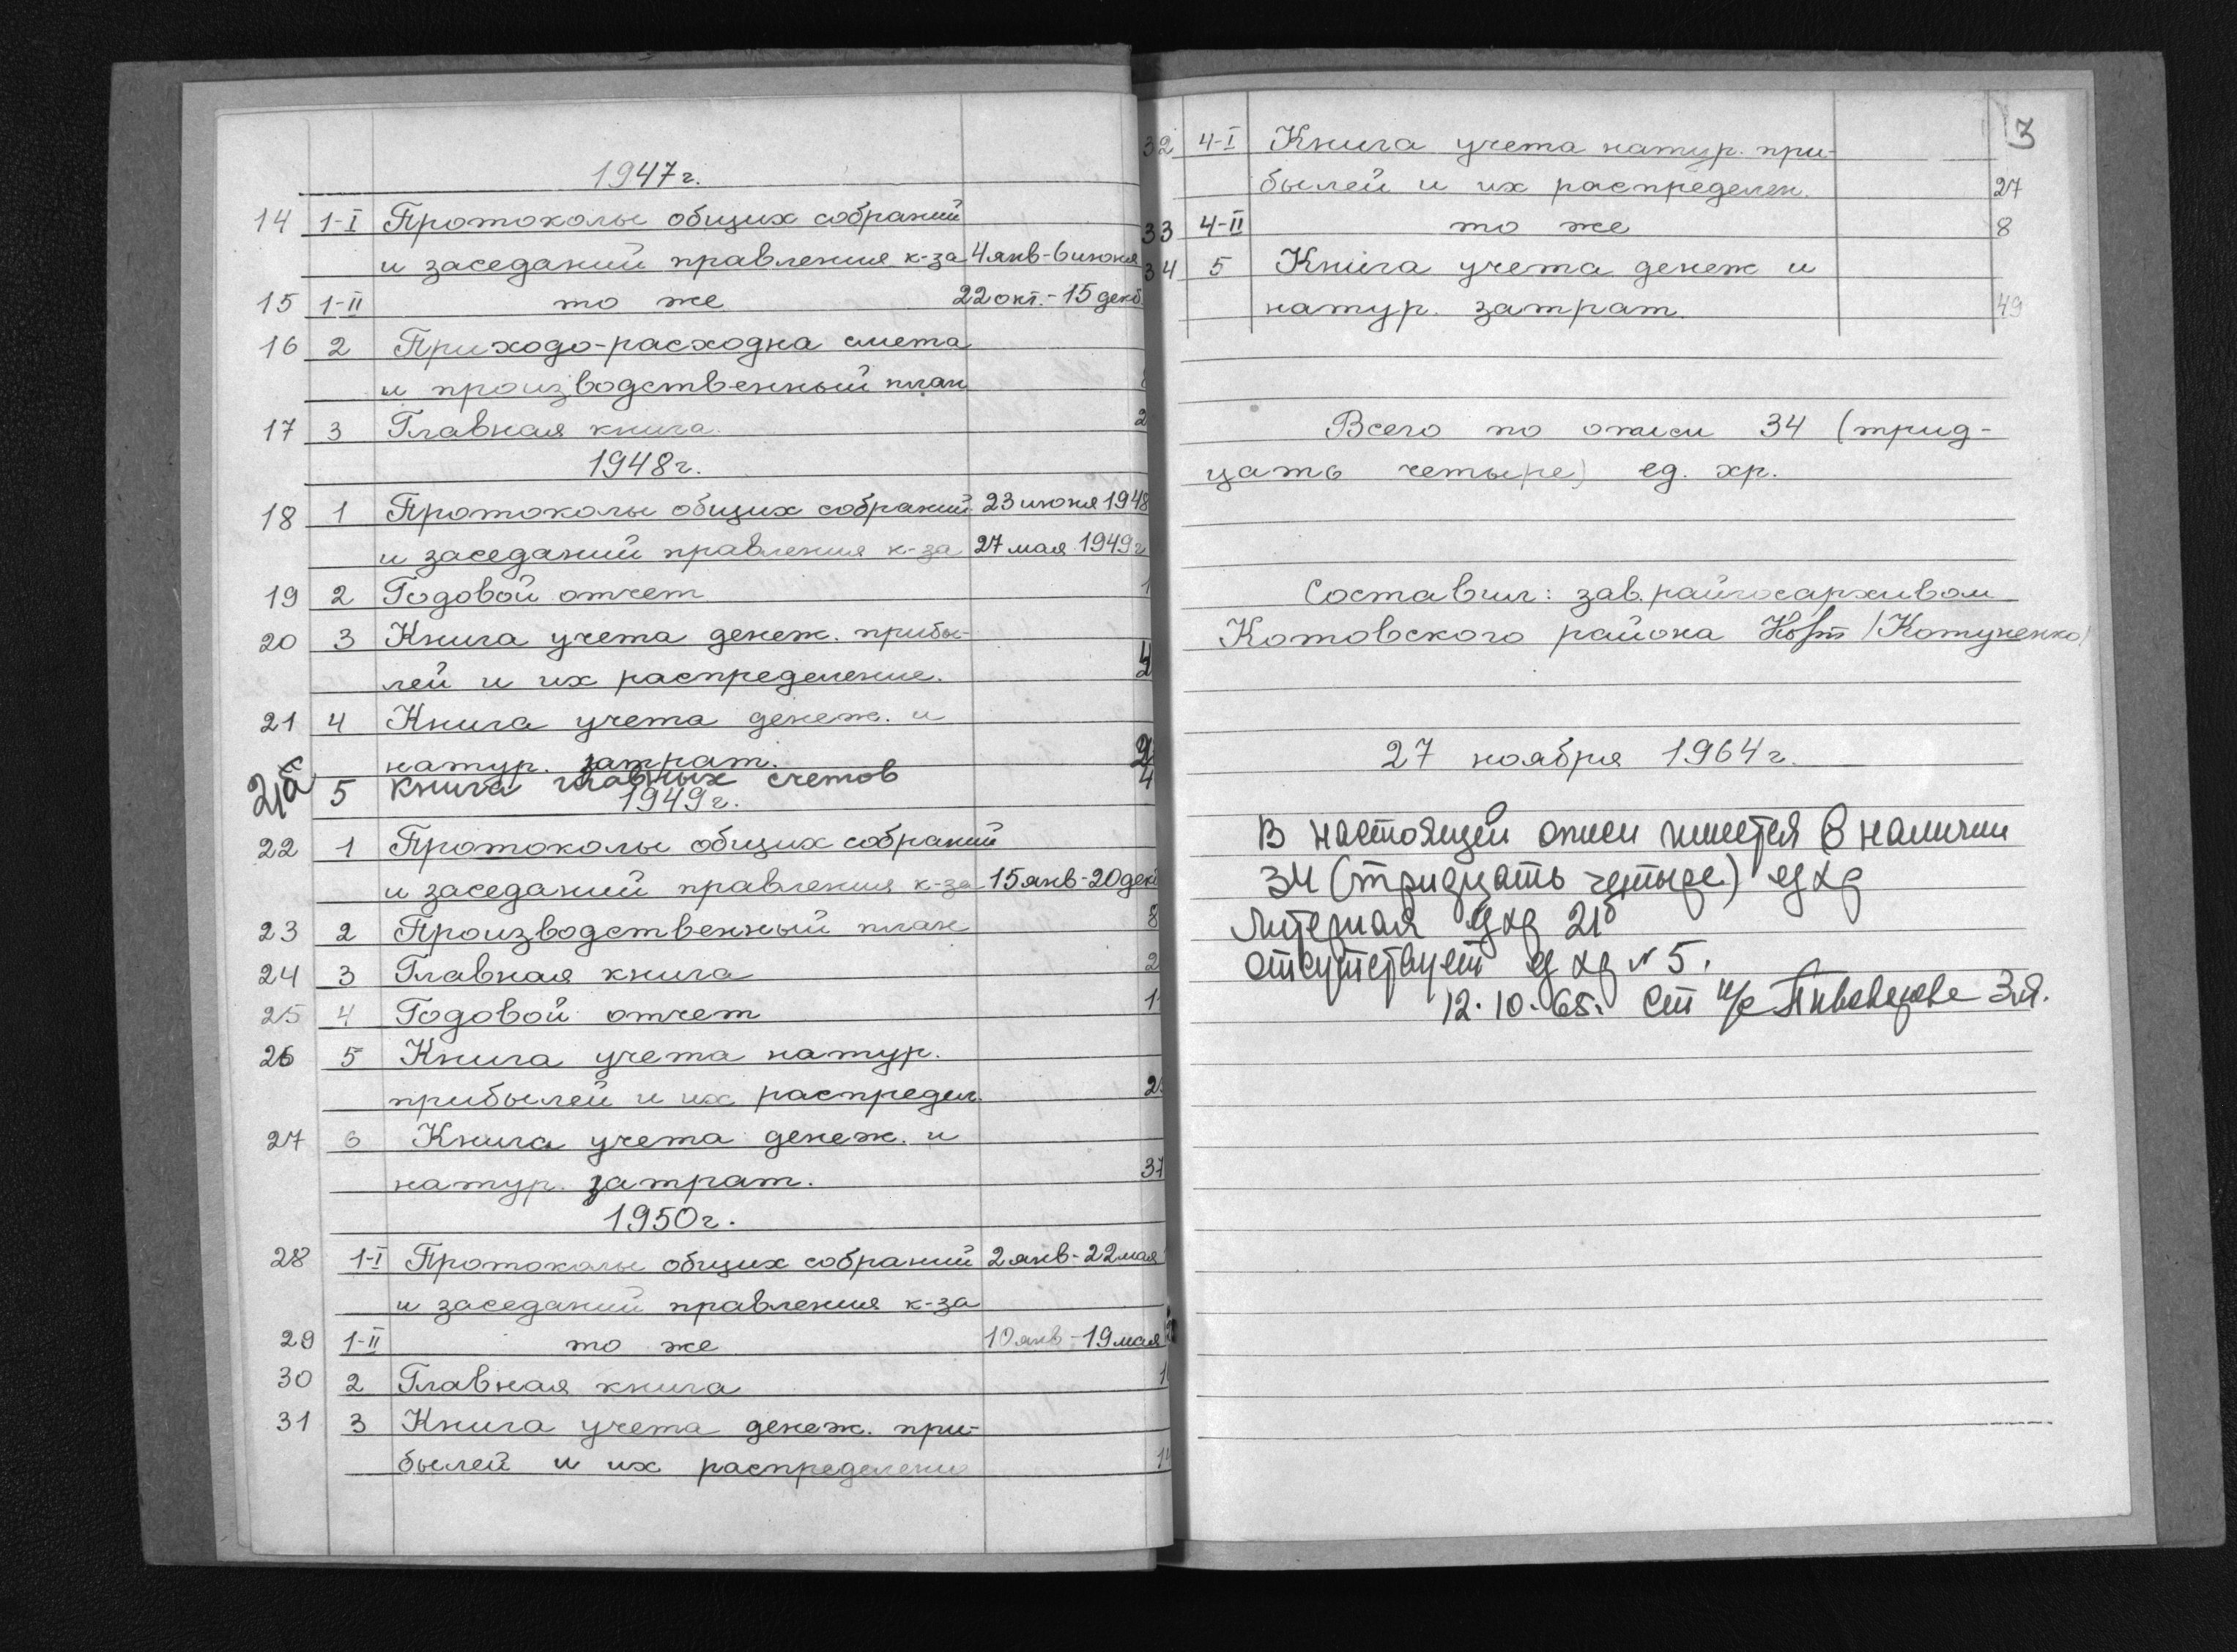 1947г.
14 1-I Протоколы общих собраний
и заседаний правления к-за 4 янв-6 июня
15 1-II то же 22 окт.-15 дек
16 2 Приходо-расходна смета
и производственный план
17 3 Главная книга
1948г.
18 1 Протоколы общих собраний 23 июня 1948
и заседаний правления к-за 27 мая 1949г
19 2 Годовой отчет
20 3 Книга учета денеж. прибы-
лей и их распределение.
21 4 Книга учета денеж. и
натур. затрат.
21а 5 Книга главных счетов 4
1949г.
22 1 Протоколы общих собраний
и заседаний правления к-за 15 янв-20 дек
23 2 Производственный план 8
24 3 Главная книга 2
25 4 Годовой отчет 1
26 5 Книга учета натур.
прибылей и их распредел. 2
27 6 Книга учета денеж. и
натур. затрат. 37
1950г.
28 1-I Протоколы общих собраний 2 янв-22 мая
и заседаний правления к-за
29 1-II то же 10 янв-19 мая
30 2 Главная книга 1
31 3 Книга учета денеж. при-
былей и их распределение
3
32 4-I Книга учета натур. при-
былей и их распределен. 27
33 4-II то же 8
34 5 Книга учета денеж и
натур. затрат. 49
Всего по описи 34 (трид-
цать четыре) ед. хр.
Составил: зав. райгосархивом
Котовского района /Котученко/
27 ноября 1964г.
В настоящей описи имеется в наличии
34 (тридцать четыре) ед хр
Литерная ед хр 21
отсутствует ед хр № 5.
12.10.65. Ст н/с